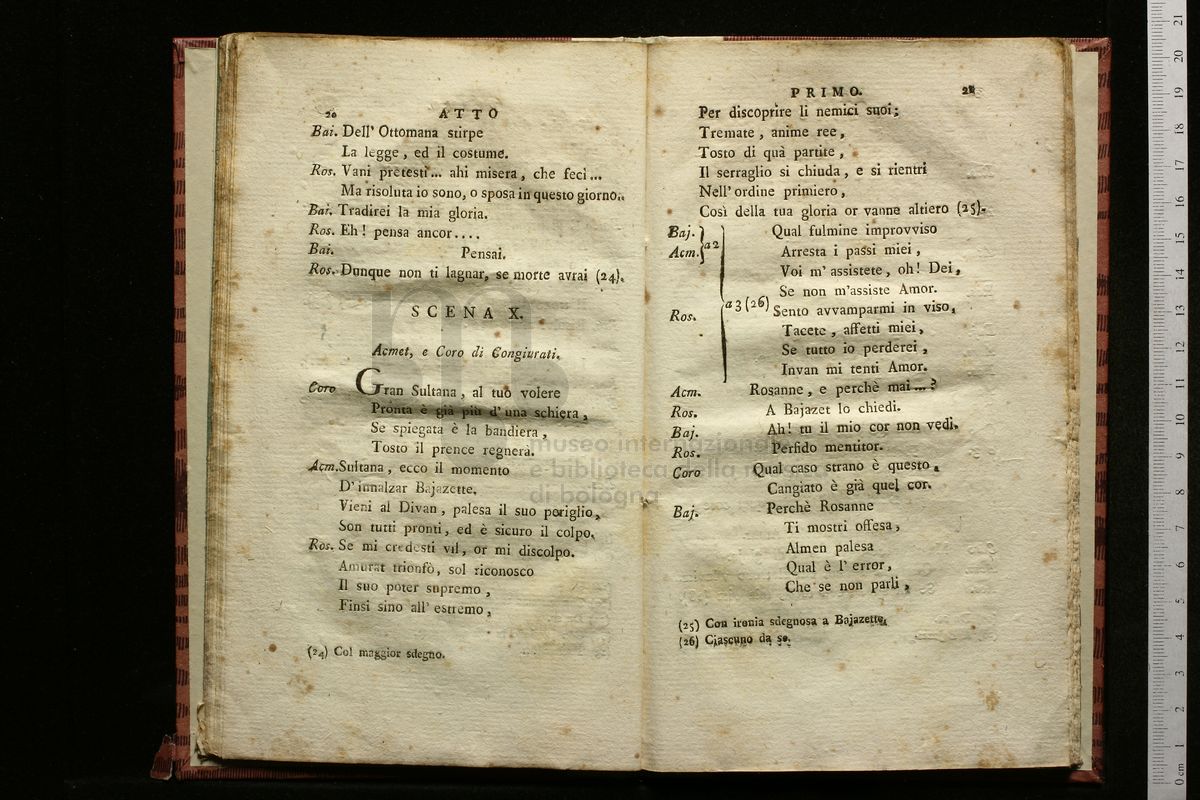 20 ATTO
Bai. Dell' Ottomana stirpe
La legge, ed il costume.
Ros. Vani pretesti... ahi misera, che feci...
Ma risoluta io sono, o sposa in questo giorno..
Bai. Tradirei la mia gloria.
Ros. Eh! pensa ancor....
Bai. Pensai.
Ros. Dunque non ti lagnar, se morte avrai (24).
SCENA X.
Acmet, e Coro di Congiurati.
Coro Gran Sultana, al tuo volere
Pronta è già più d'una schiera,
Se spiegata è la bandiera,
Tosto il prence regnera.
Acm. Sultana, ecco il momento
D'innalzar Bajazette.
Vieni al Divan, palesa il suo periglio,
Son tutti pronti, ed è sicuro il colpo.
Ros. Se mi credesti vil, or mi discolpo.
Amurat trionfò, sol riconosco
Il suo poter supremo,
Finsi sino all'estremo,
(24) Col maggior sdegno.
PRIMO. 21
Per discoprire li nemici suoi;
Tremate, anime ree,
Tosto di quà partite,
Il serraglio si chiuda, e si rientri
Nell'ordine primiero,
Così della tua gloria or vanne altiero (25).
Baj. Qual fulmine improvviso
Acm. a 2 Arresta i passi miei,
Voi m'assistete, oh! Dei,
Se non m'assiste Amor.
Ros. a 3 (26) Sento avvamparmi in viso,
Tacete, affetti miei,
Se tutto io perderei,
Invan mi tenti Amor.
Acm. Rosanne, e perchè mai...?
Ros. A Bajazet lo chiedi.
Baj. Ah! tu il mio cor non vedi.
Ros. Perfido mentitor.
Coro Qual caso strano è questo.
Cangiato è già quel cor.
Baj. Perchè Rosanne
Ti mostri offesa,
Almen palesa
Qual è l'error,
Che se non parli,
(25) Con ironia sdegnosa a Bajazette.
(26) Ciascuno da se.
museo internazionale
e biblioteca della
di bologna
21
20
19
18
17
16
15
14
13
12
11
10
9
8
7
6
5
4
3
2
1
0 cm